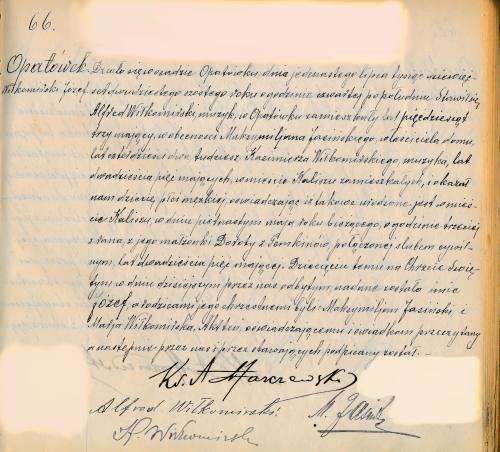 66.
Opatówek. Działo się w osadzie Opatówku dnia jedenastego lipca tysiąc dziewięć-
Wiłkomirski Józef. set dwudziestego szóstego roku o godzinie czwartej po południu. Stawił się
Alfred Wiłkomirski, muzyk, w Opatówku zamieszkały, lat pięćdziesiąt
trzy mający, w obecności Maksymiljana Jasińskiego, właściciela domu,
lat czterdzieści dwa, tudzież Kazimierza Wiłkomirskiego, muzyka, lat
dwadzieścia pięć mających, w mieście Kaliszu zamieszkałych, i okazał
nam dziecię płci męskiej, oświadczając iż takowe urodzone jest w mieś-
cie Kaliszu, w dniu piętnastym maja roku bieżącego, o godzinie trzeciej
z rana, z jego małżonki Doroty z Temkinów, połączonej ślubem cywil-
nym, lat dwadzieścia pięć mającej. Dziecięciu temu na Chrzcie Świę-
tym, w dniu dzisiejszym przez nas odbytym, nadane zostało imię
Józef, a rodzicami jego chrzestnymi byli: Maksymiljan Jasiński i
Marja Wiłkomirska. Akt ten, oświadczającemu i świadkom przeczytany
a następnie przez nas i przez stawających podpisany został. –
Ks. A Marczewski
Alfred Wiłkomirski
M. Jasiński
K. Wiłkomirski